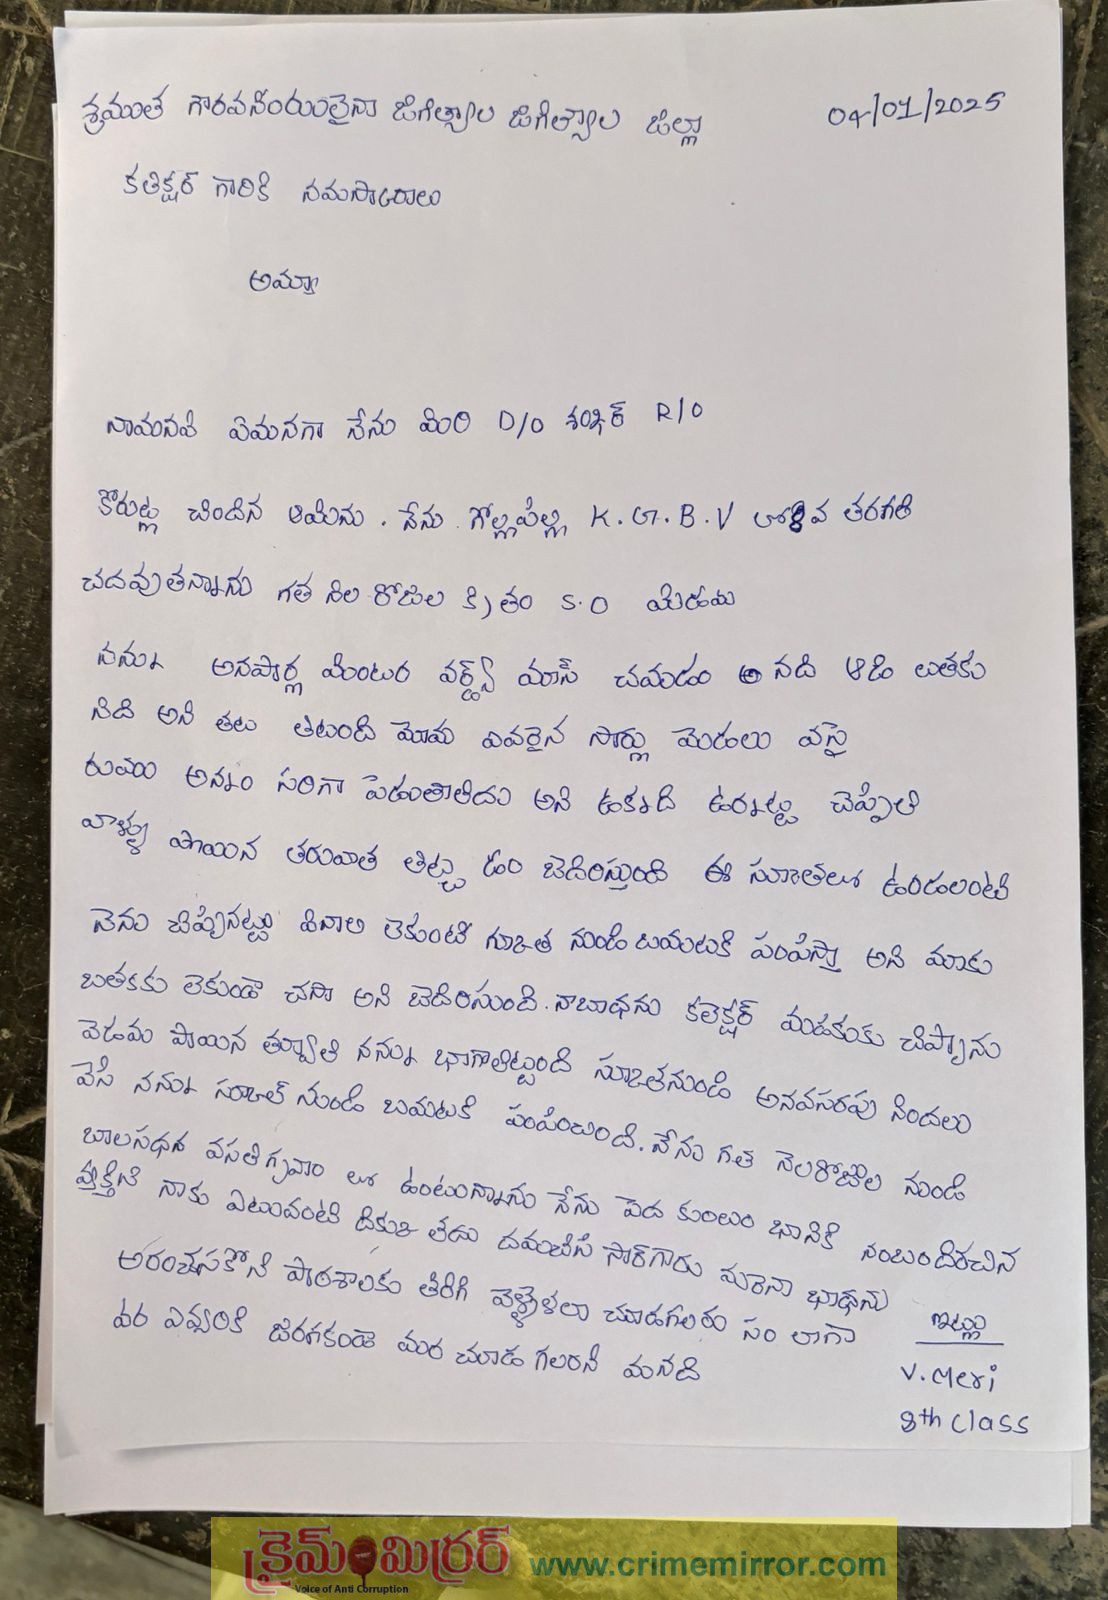 శ్రీముత గౌరవనీయులైనా జగిత్యాల జగిత్యాల జిల్లా 04/01/2025
కలెక్టర్ గారికి నమస్కారాలు
అమ్మా
నామనవి ఏమనగా నేను మేరి D/O శంకర్ R/O
కోరుట్ల చెందిన ఆమేను. నేను గోల్లపల్లి K.G.B.V లో 8వ తరగతి
చదవుతన్నాను గత నెల రోజుల క్రితం S.O మేడమ
నన్ను మెంటర వర్డ్స్ అనది ఆడి బతకు
నిది అని తల తిటంది మేమ ఎవరైన సార్లు మెడలు వస్తె
రుమ అన్నం సరిగా పెడుంతాలేదు అని ఉకన్నది ఉన్నట్టు చెప్పితె
వాళ్ళు పొయిన తరువాత తిట్ట డం బెదిరిస్తుంది ఈ ఉండలంటె
నెను చెప్పినట్టు వినాల లెకుంటె నుండి బయటకి పంపిస్తా అని మాకు
బతకకు లెకుండా చస్తా అని బెదిరిసుంది. నాబాధను కలెక్టర్ మడకుకు చెప్పాను
వెడమ పొయిన తర్వాత నన్ను భాగాతిట్టింది స్కూలనుండి అనవసరపు నిందలు
వేసి నన్ను స్కూల్ నుండి బయటకి పంపించింది. నేను గత నెలరోజుల నుండి
బాలసధన వసతిగృహం లో ఉంటున్నాను నేను పెద కులం భానికి సంబందించిన
వ్యక్తిని నాకు ఎటువంటి దికుకు లేదు దయచేసి సార్‌గారు మారనా భాధను
అరంచెసకోని పాఠశాలకు తిరిగి వెళ్ళెళలా చూడగలరు సం లాగా
వర ఎవ్వరికి జరగకుండా మర చూడ గలరని మనది
ఇట్లు
V. Meri
8th class
క్రైమ్ మిర్రర్
Voice of Anti Corruption
www.crimemirror.com